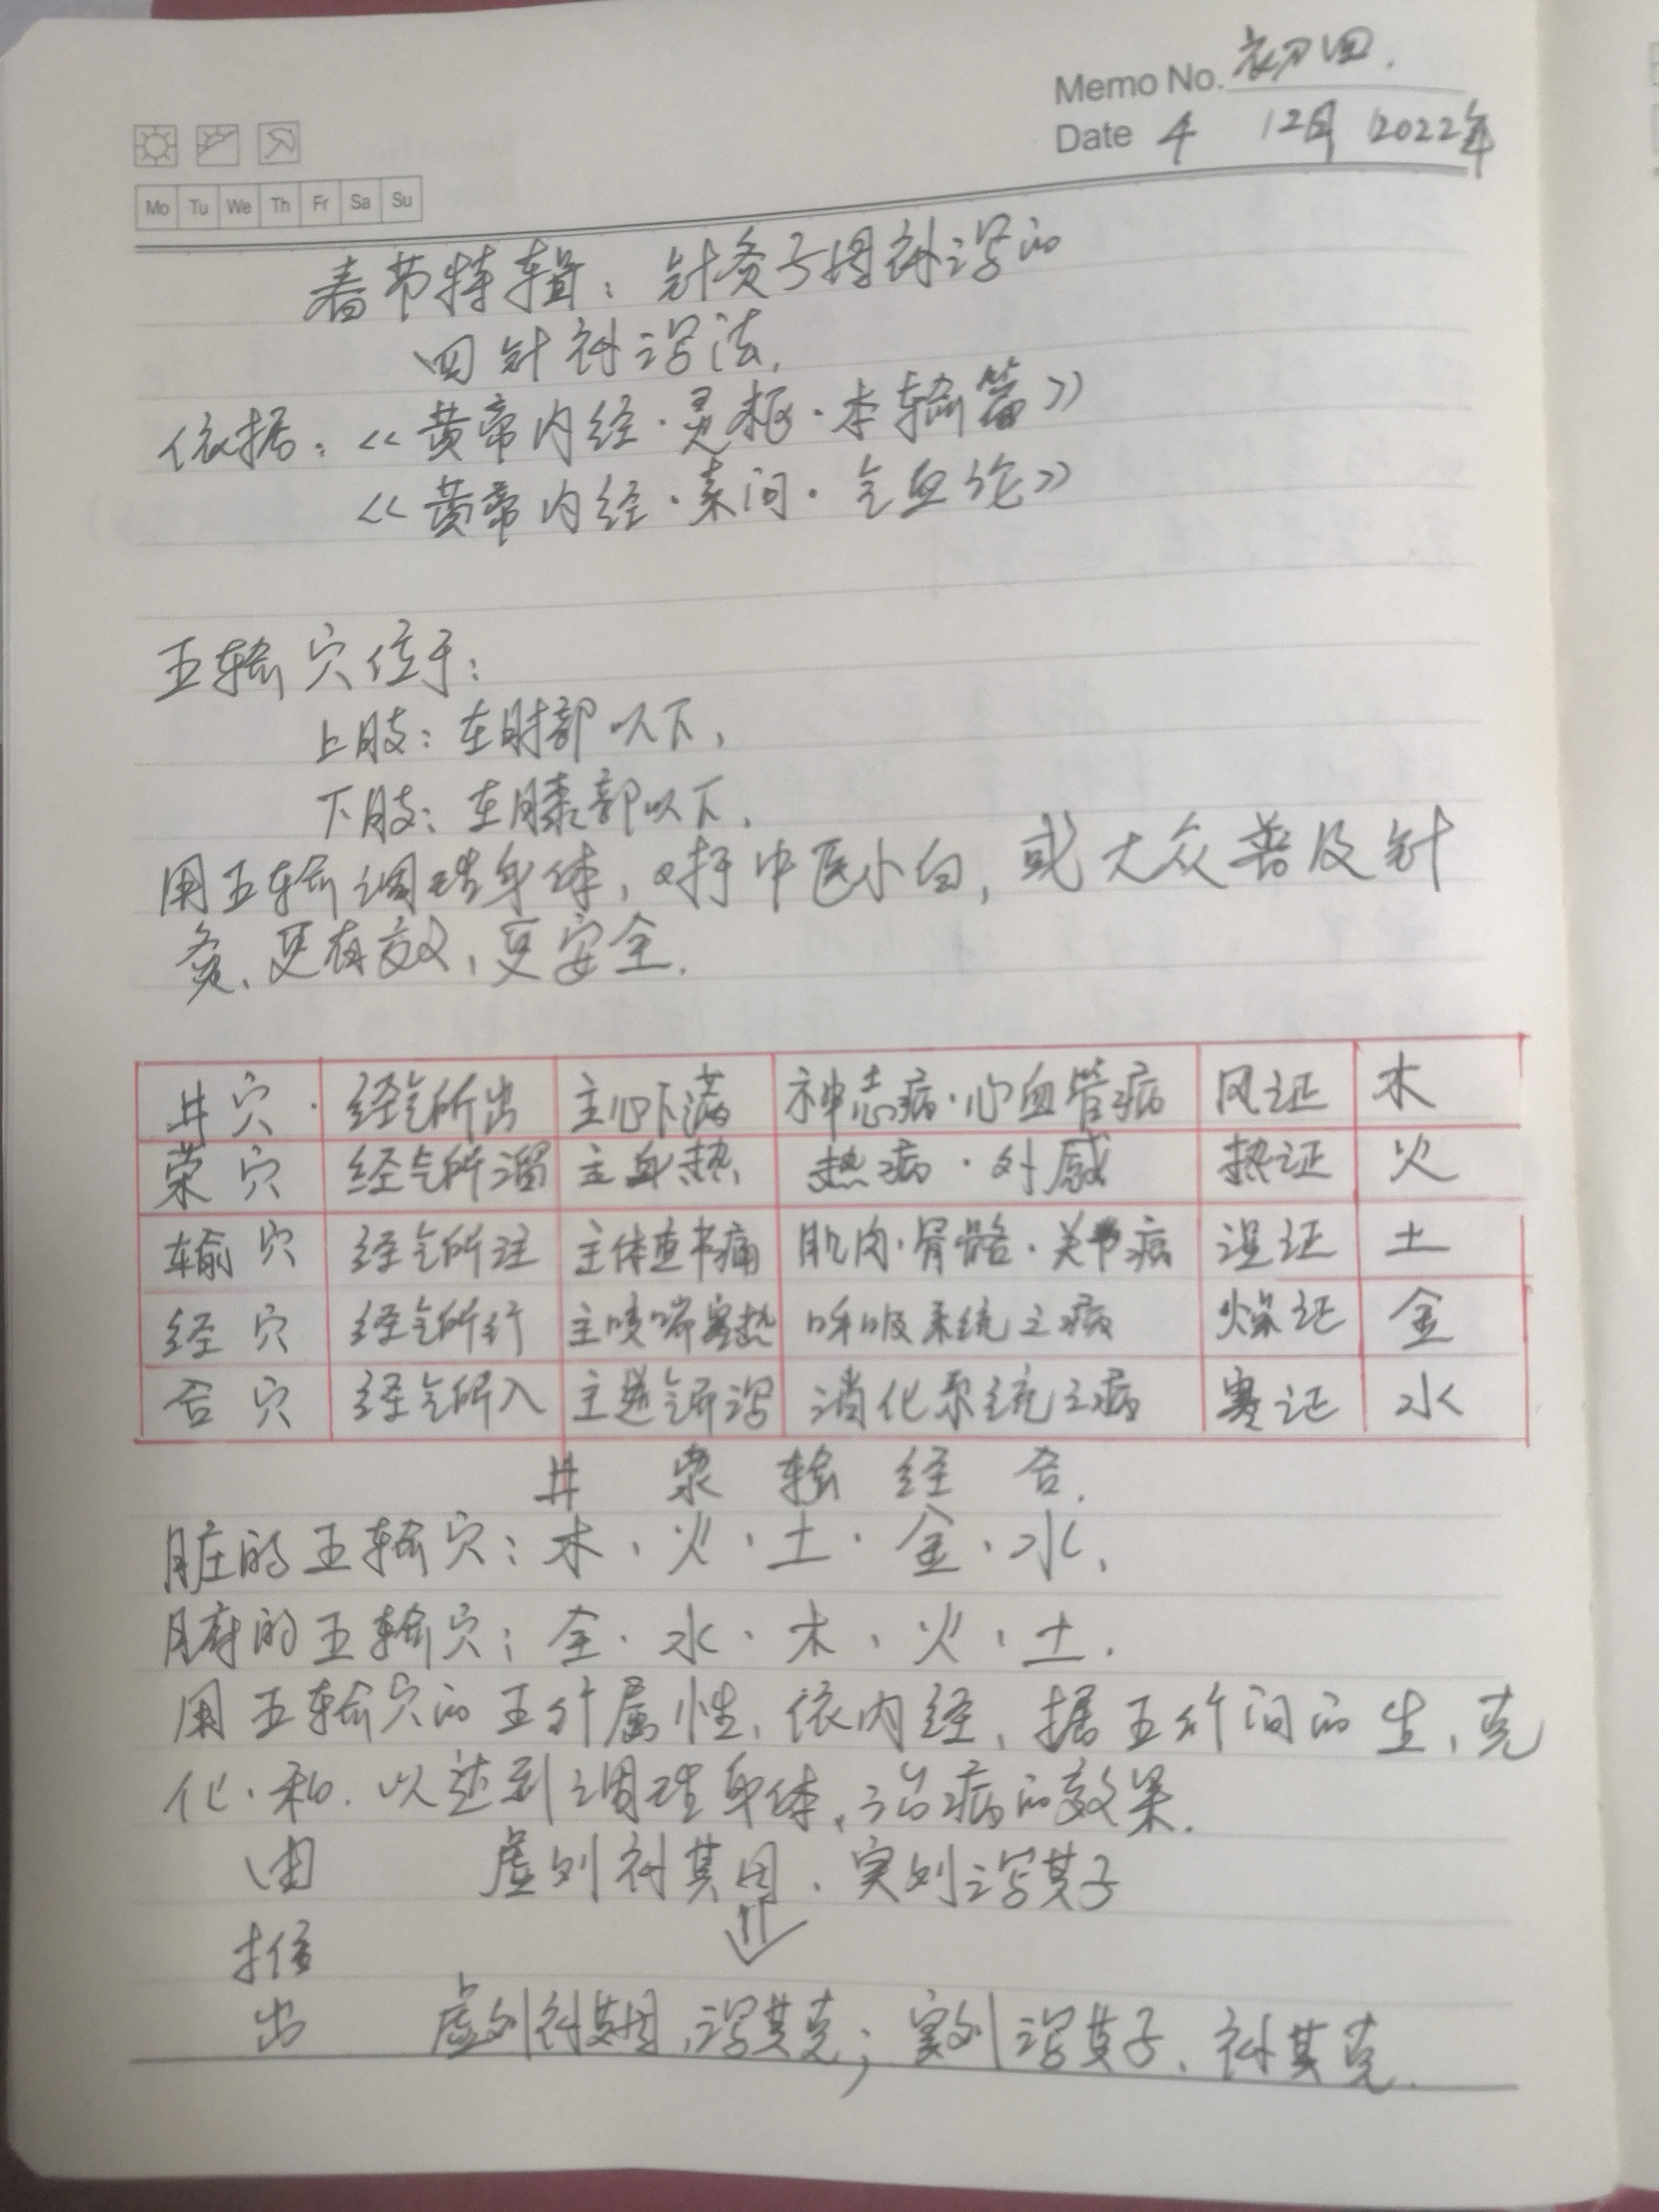 Memo No. 初四.
Date 4 12月 2022年
Mo Tu We Th Fr Sa Su
春节特辑：针灸子母补泻的
四针补泻法.
依据：《黄帝内经·灵枢·本输篇》
《黄帝内经·素问·气血论》
五输穴位于：
上肢：在肘部以下,
下肢：在膝部以下.
用五输调理身体，对于中医小白，或大众普及针
灸、更有效，更安全.
井穴· 经气所出 主心下满 神志病·心血管病 风证 木
荣穴 经气所溜 主身热 热病·外感 热证 火
输穴 经气所注 主体重节痛 肌肉·骨骼·关节病 湿证 土
经穴 经气所行 主咳喘寒热 呼吸系统之病 燥证 金
合穴 经气所入 主逆气而泻 消化系统之病 寒证 水
井 荥 输 经 合.
脏的五输穴：木、火·土·金·水、
腑的五输穴：金·水·木、火、土.
用五输穴的五行属性、依内经，据五行间的生、克
化·和.以达到调理身体、治病的效果.
由 虚则补其母、实则泻其子
推
出 虚则补其母、泻其克；实则泻其子、补其克.